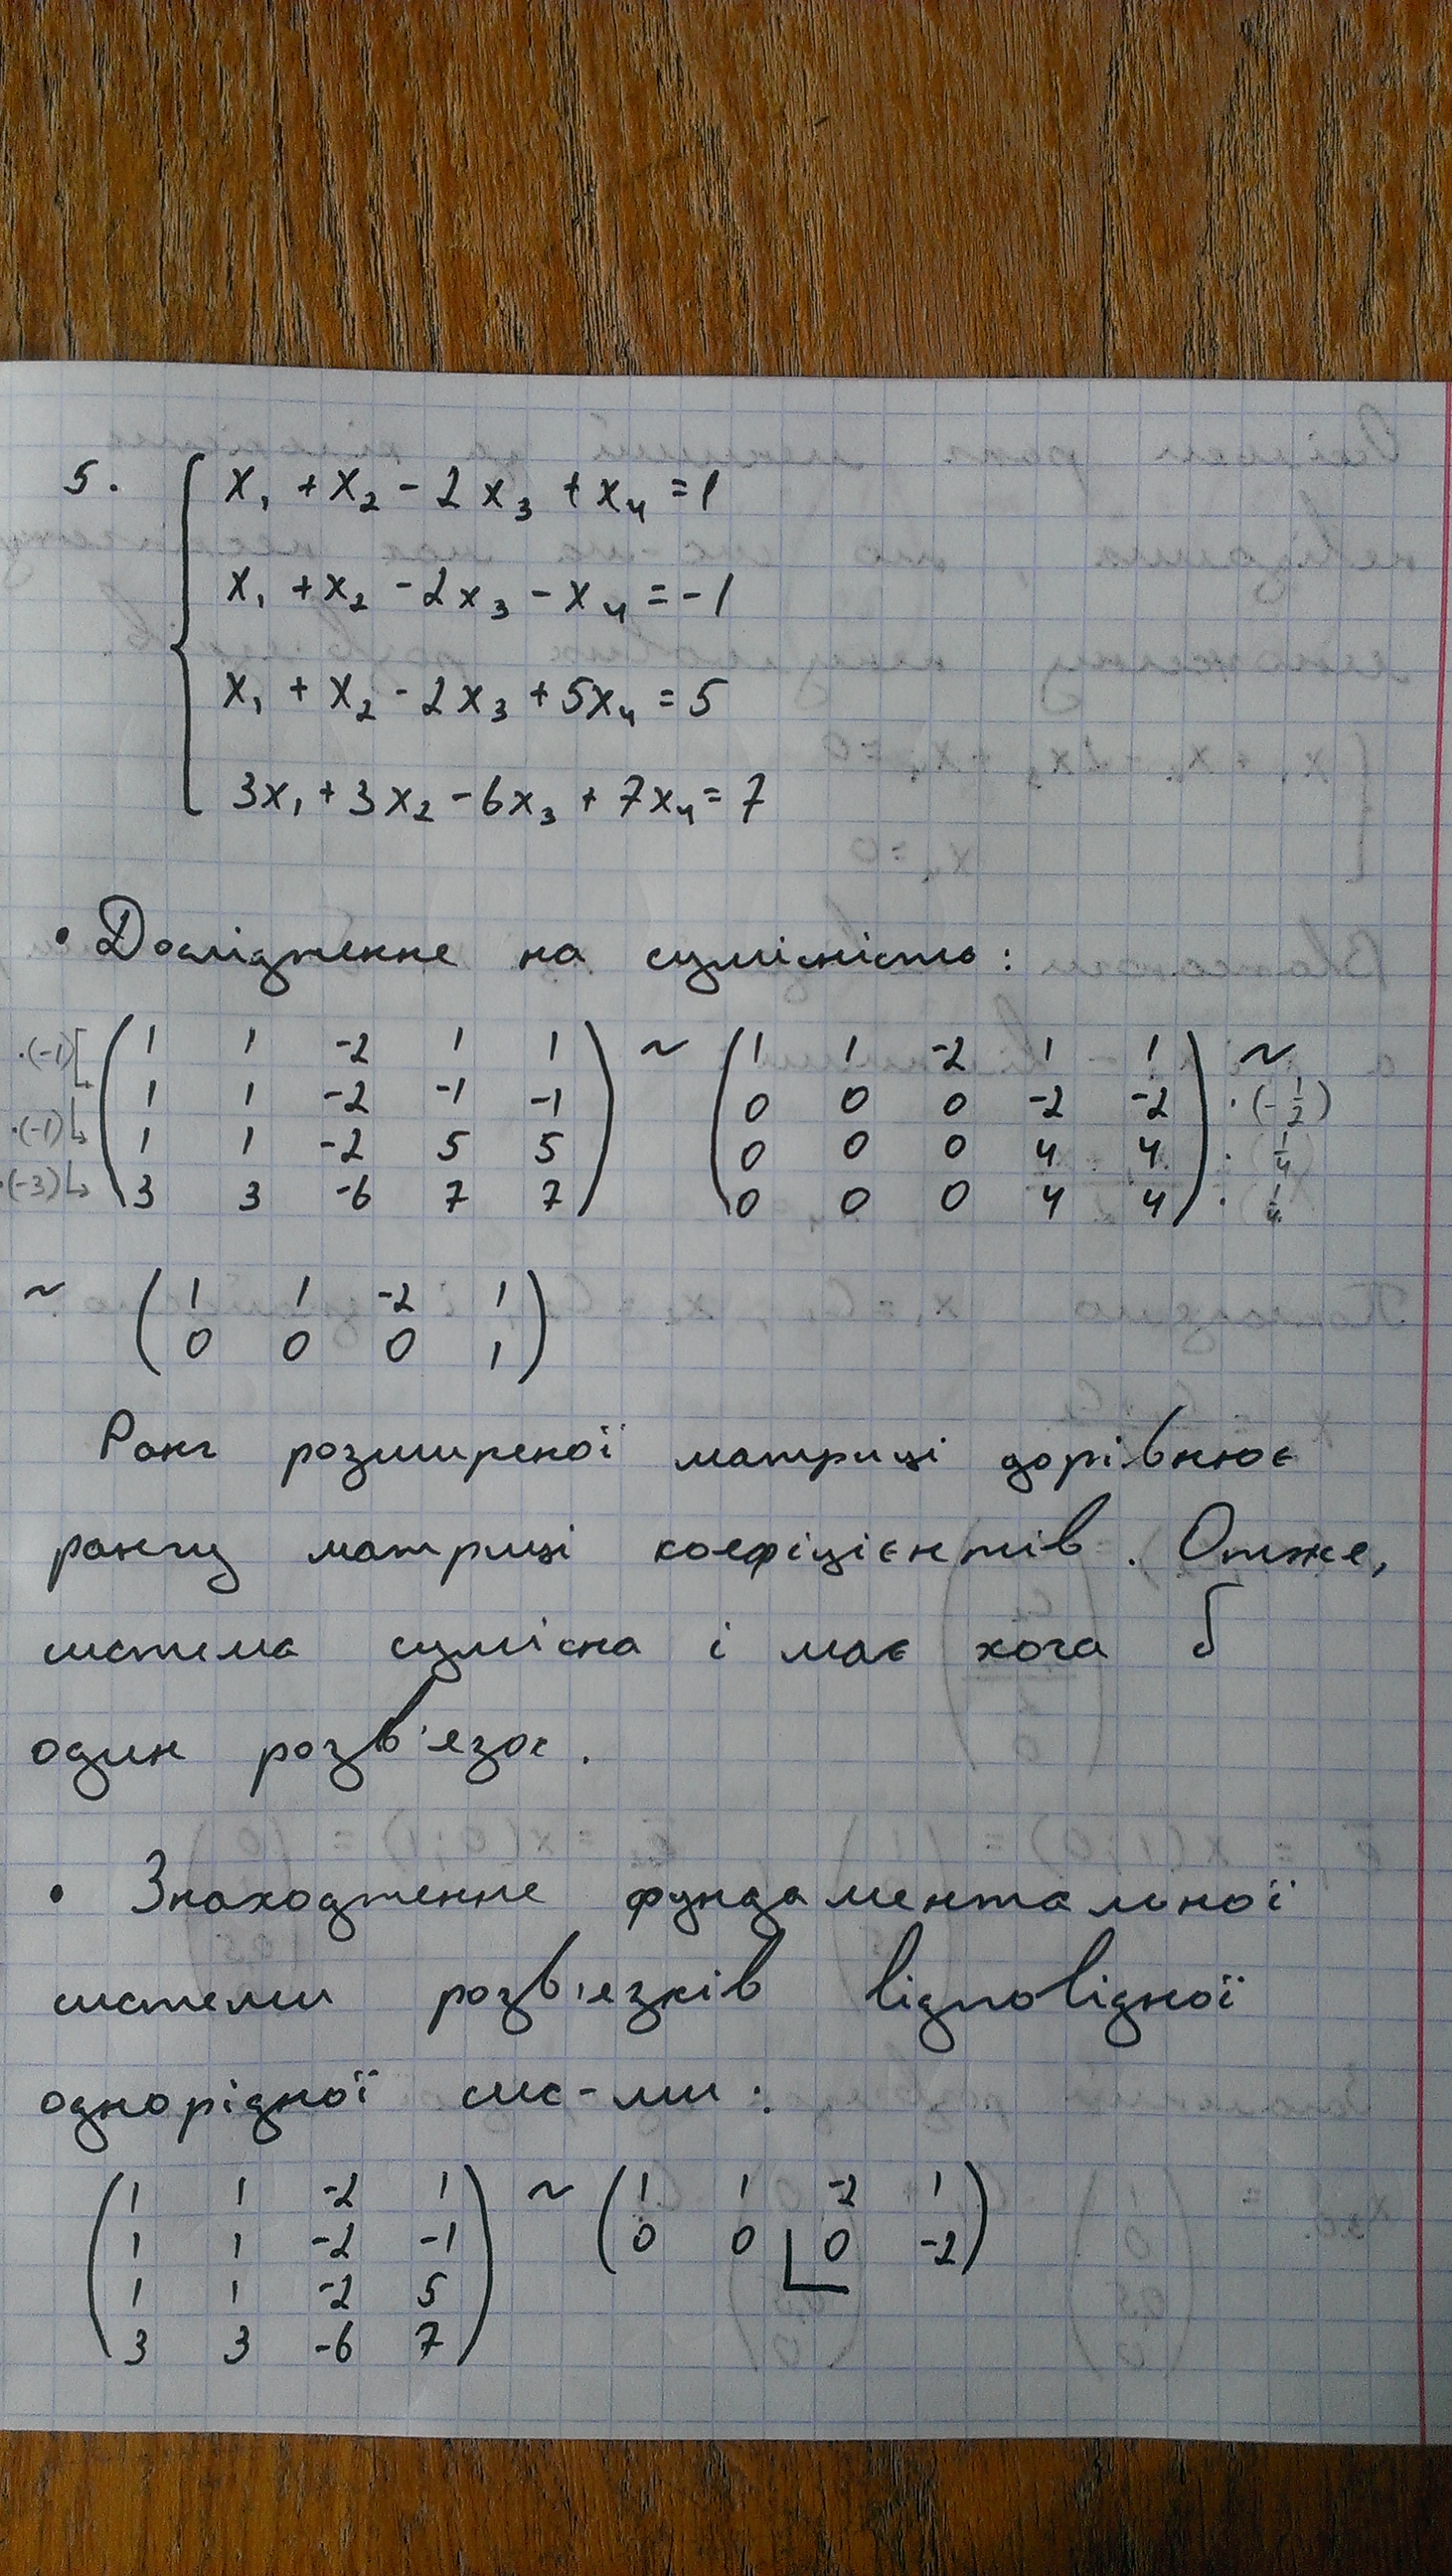 5. x₁ + x₂ - 2x₃ + x₄ = 1
x₁ + x₂ - 2x₃ - x₄ = -1
x₁ + x₂ - 2x₃ + 5x₄ = 5
3x₁ + 3x₂ - 6x₃ + 7x₄ = 7
• Дослідження на сумісність:
·(-1) ( 1 1 -2 1 1 ) ~ ( 1 1 -2 1 1 ) ~
( 1 1 -2 -1 -1 ) ( 0 0 0 -2 -2 ) · (-1/2)
·(-1) ( 1 1 -2 5 5 ) ( 0 0 0 4 4 ) · 1/4
·(-3) ( 3 3 -6 7 7 ) ( 0 0 0 4 4 ) · 1/4
~ ( 1 1 -2 1 )
( 0 0 0 1 )
Ранг розширеної матриці дорівнює
рангу матриці коефіцієнтів. Отже,
система сумісна і має хоча б
один розв'язок.
• Знаходження фундаментальної
системи розв'язків відповідної
однорідної сис-ми:
( 1 1 -2 1 ) ~ ( 1 1 -2 1 )
( 1 1 -2 -1 ) ( 0 0 0 -2 )
( 1 1 -2 5 )
( 3 3 -6 7 )